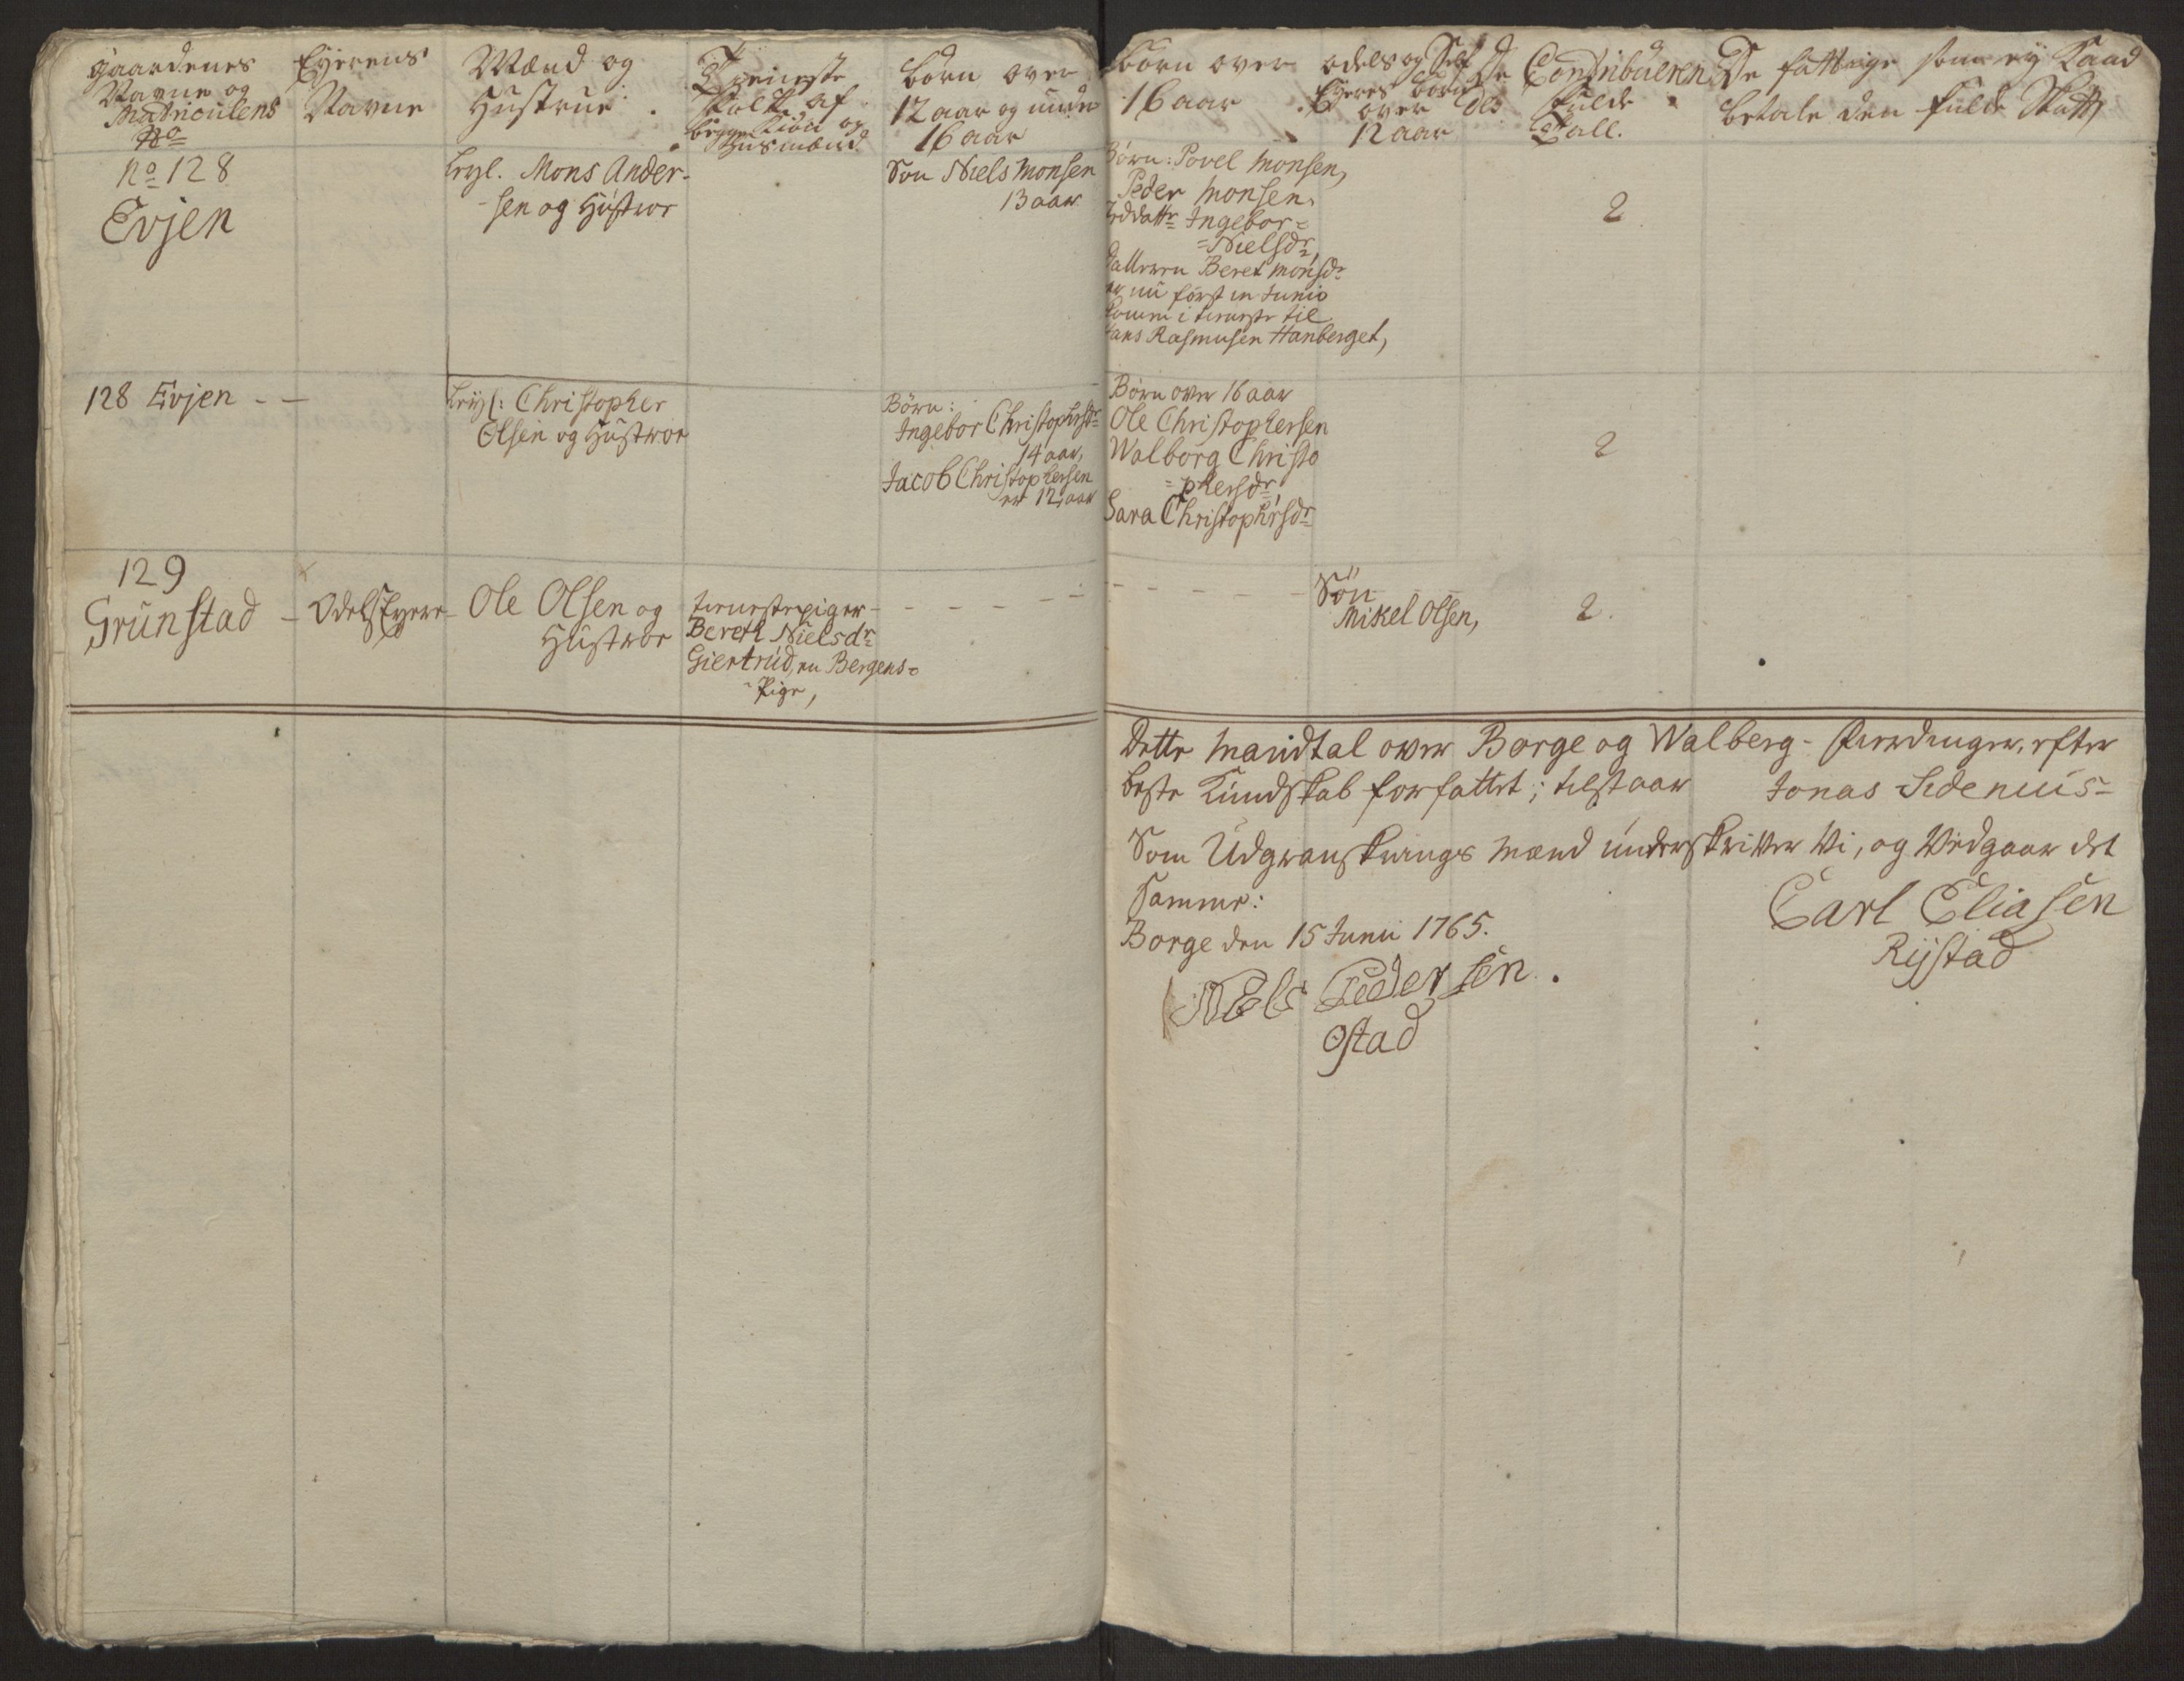 Gaardenes
Navne og
Matriculens
No
Eyerens
Navne
Mænd og
Hustrue.
Tieneste
Folk af
begge Kiøn og
Husmænd
Børn over
12 aar og under
16 aar
Børn over
16 aar
Odels og Self
Eyeres Børn
over
12 aar
De Contribuerendes
Fulde
Tall.
De fattige som ey Kand
betale den fulde Skatt
No 128
Evjen
leyl. Mons Ander-
-sen og Hustroe
Søn Niels Monsen
13 aar
Børn: Povel Monsen,
Peder Monsen,
Ingebor=
=Nielsdr,
Datteren Beret Monsdr
er nu først in Junio
kommen i tieneste til
Hans Rasmusen Hanberget,
2
128 Evjen - -
leyl: Christopher
Olsen og Hustroe
Børn:
Ingebor Christophrsdr
14 aar,
Jacob Christophersen
er 12 aar
Børn over 16 aar
Ole Christophersen
Walborg Christo
=phersdr,
Sara Christophrsdr
2
129
Grünstad -
OdelsEyere -
Ole Olsen og
Hustroe
tienestepiger -
Bereth Nielsdr
Giertrud, en Bergens=
-Pige,
Søn
Mikel Olsen,
2.
Dette Mandtal over Borge og Walberg-Fierdinger, efter
beste Kundskab forfattet; tilstaar Jonas Sidenius
Som Udgranskings Mænd underskriver Vi, og Vedgaar det
samme:
Borge den 15 Junii 1765.
Carl Eliasen
Rystad
Nels Pedersen.
Ostad